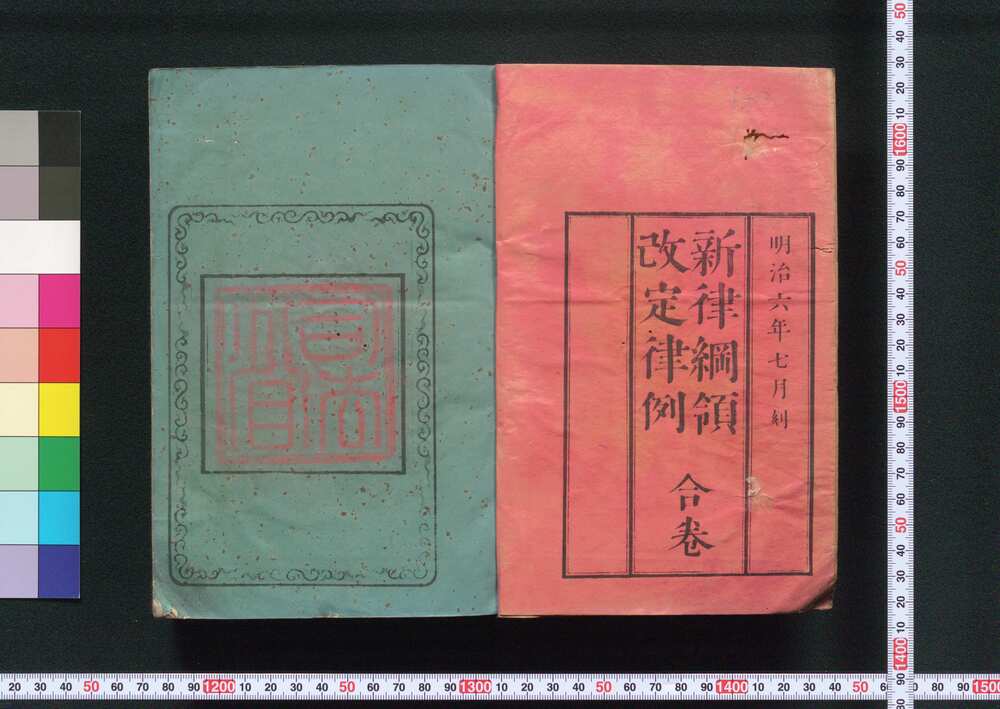 明治六年七月
新律綱領
改定律例
合卷
50 40 30 20 10 1600 90 80 70 60 50 40 30 20 10 1500 90 80 70 60 50 40 30 20 10 1400 90
20 30 40 50 60 70 80 90 1200 10 20 30 40 50 60 70 80 90 1300 10 20 30 40 50 60 70 80 90 1400 10 20 30 40 50 80 90